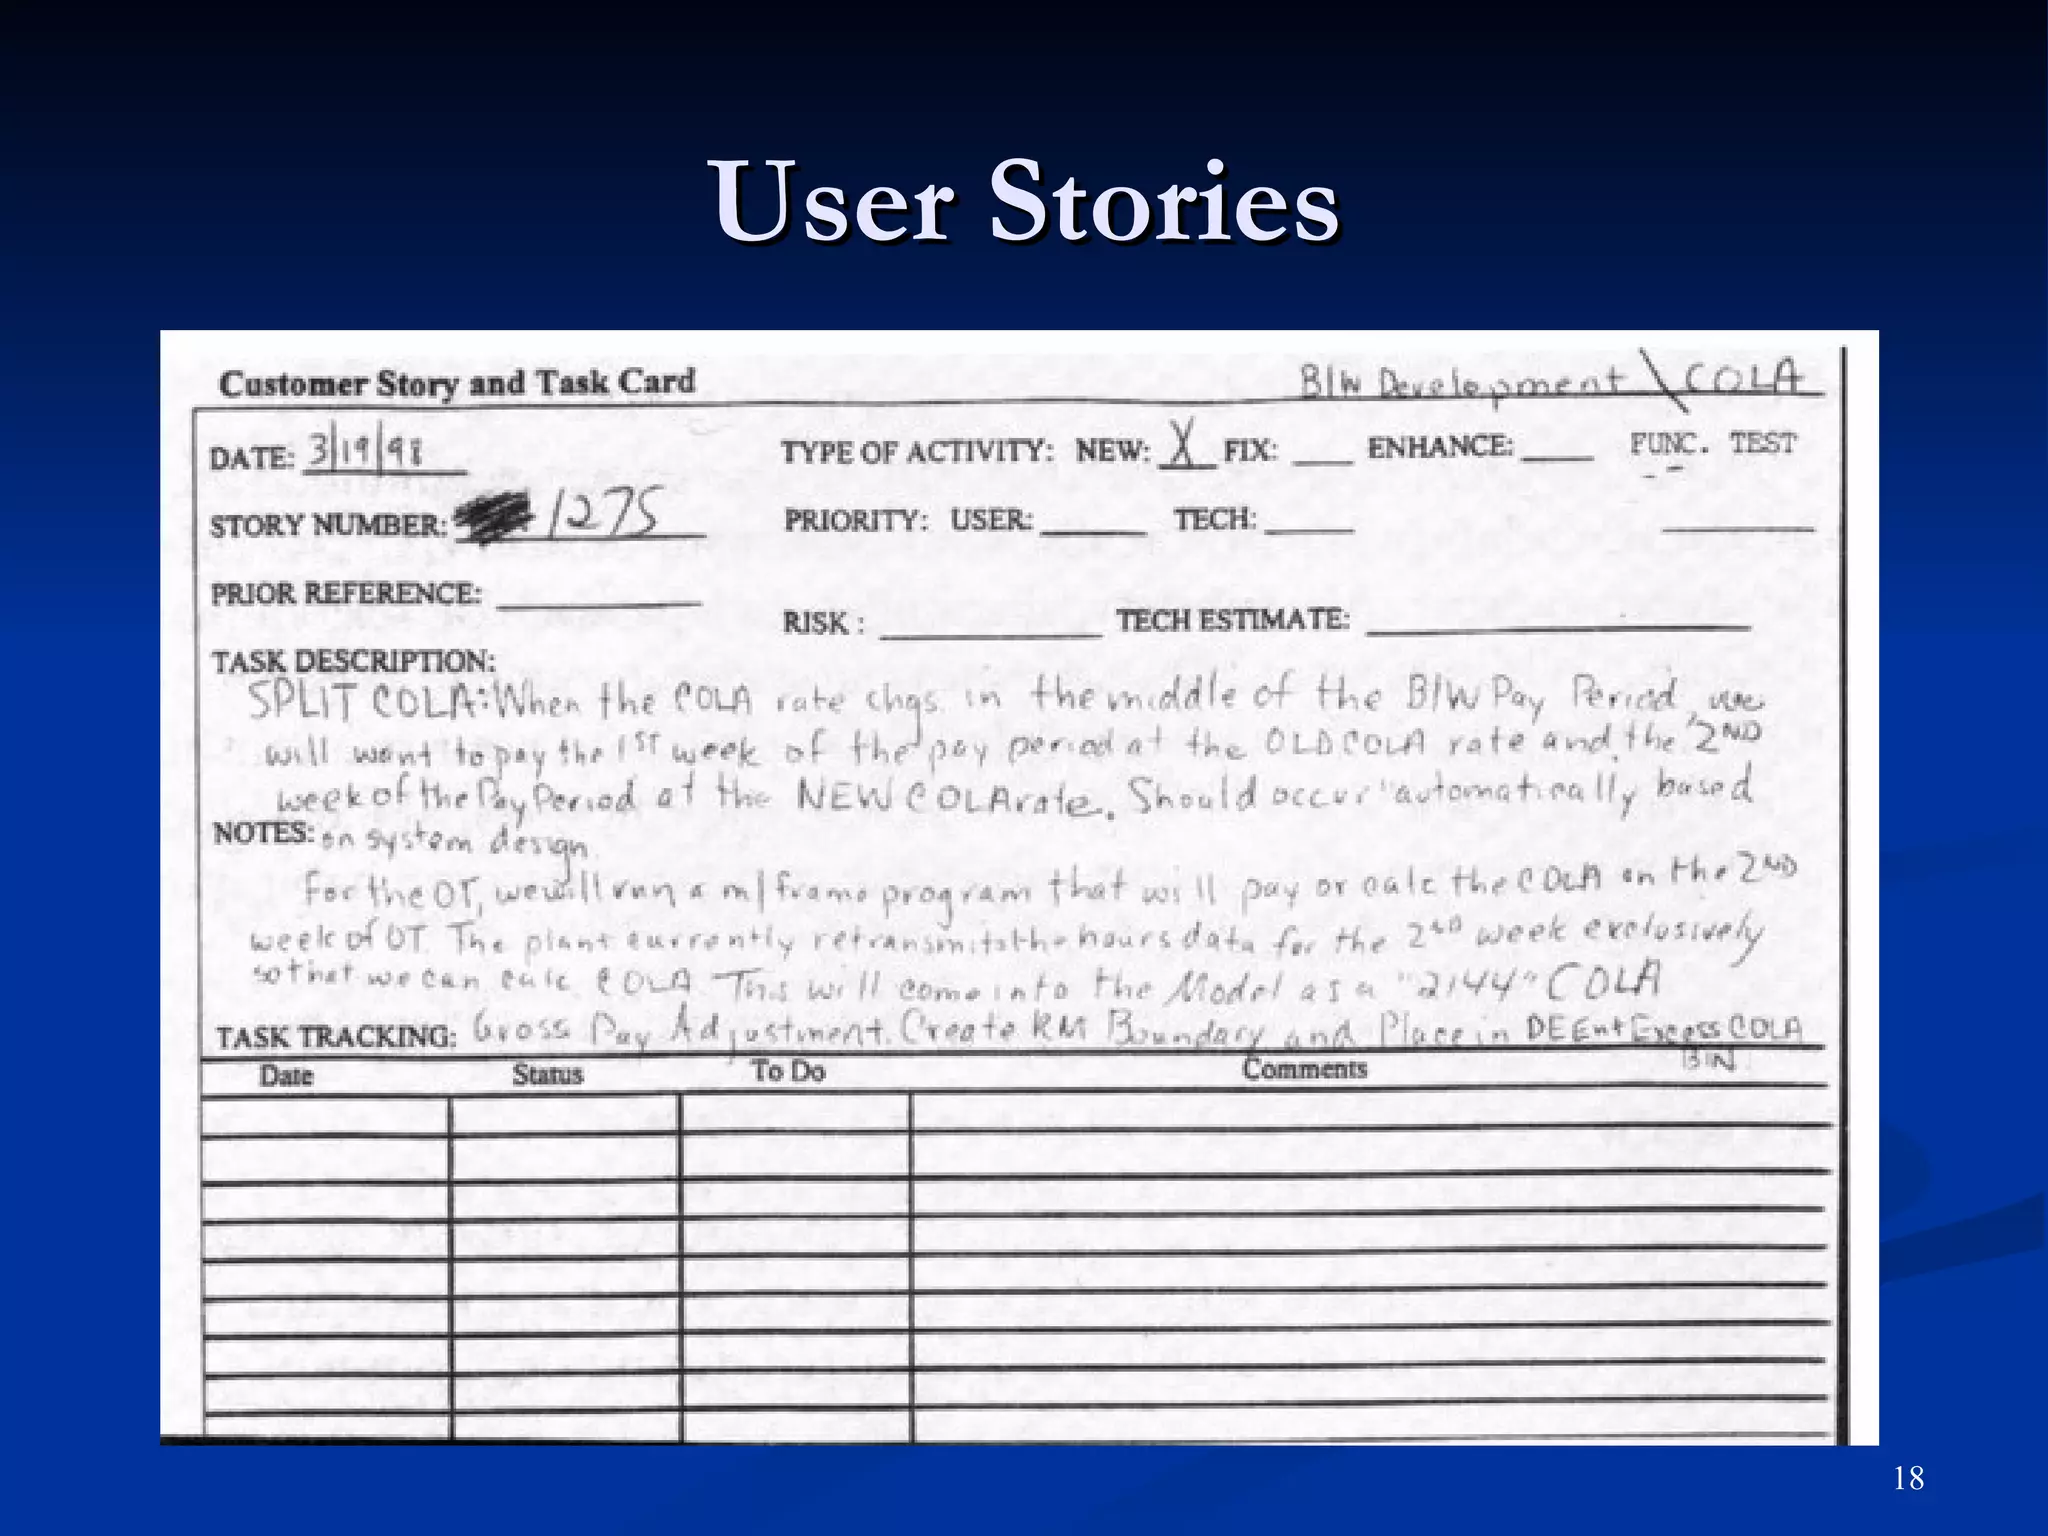 User Stories
Customer Story and Task Card B/W Development \ COLA
DATE: 3/19/98 TYPE OF ACTIVITY: NEW: X FIX: ENHANCE: FUNC. TEST
STORY NUMBER: 1275 PRIORITY: USER: TECH:
PRIOR REFERENCE:
RISK : TECH ESTIMATE:
TASK DESCRIPTION:
SPLIT COLA: When the COLA rate chgs. in the middle of the B/W Pay Period, we
will want to pay the 1ST week of the pay period at the OLD COLA rate and the 2ND
week of the Pay Period at the NEW COLA rate. Should occur "automatically based
NOTES: on system design
For the OT, we will run a m/frame program that will pay or calc the COLA on the 2ND
week of OT. The plant currently retransmits the hours data for the 2ND week exclusively
so that we can calc COLA. This will come into the Model as a "2144" COLA
TASK TRACKING: Gross Pay Adjustment. Create RM Boundary and Place in DEEnt Excess COLA
BIN
Date Status To Do Comments
18